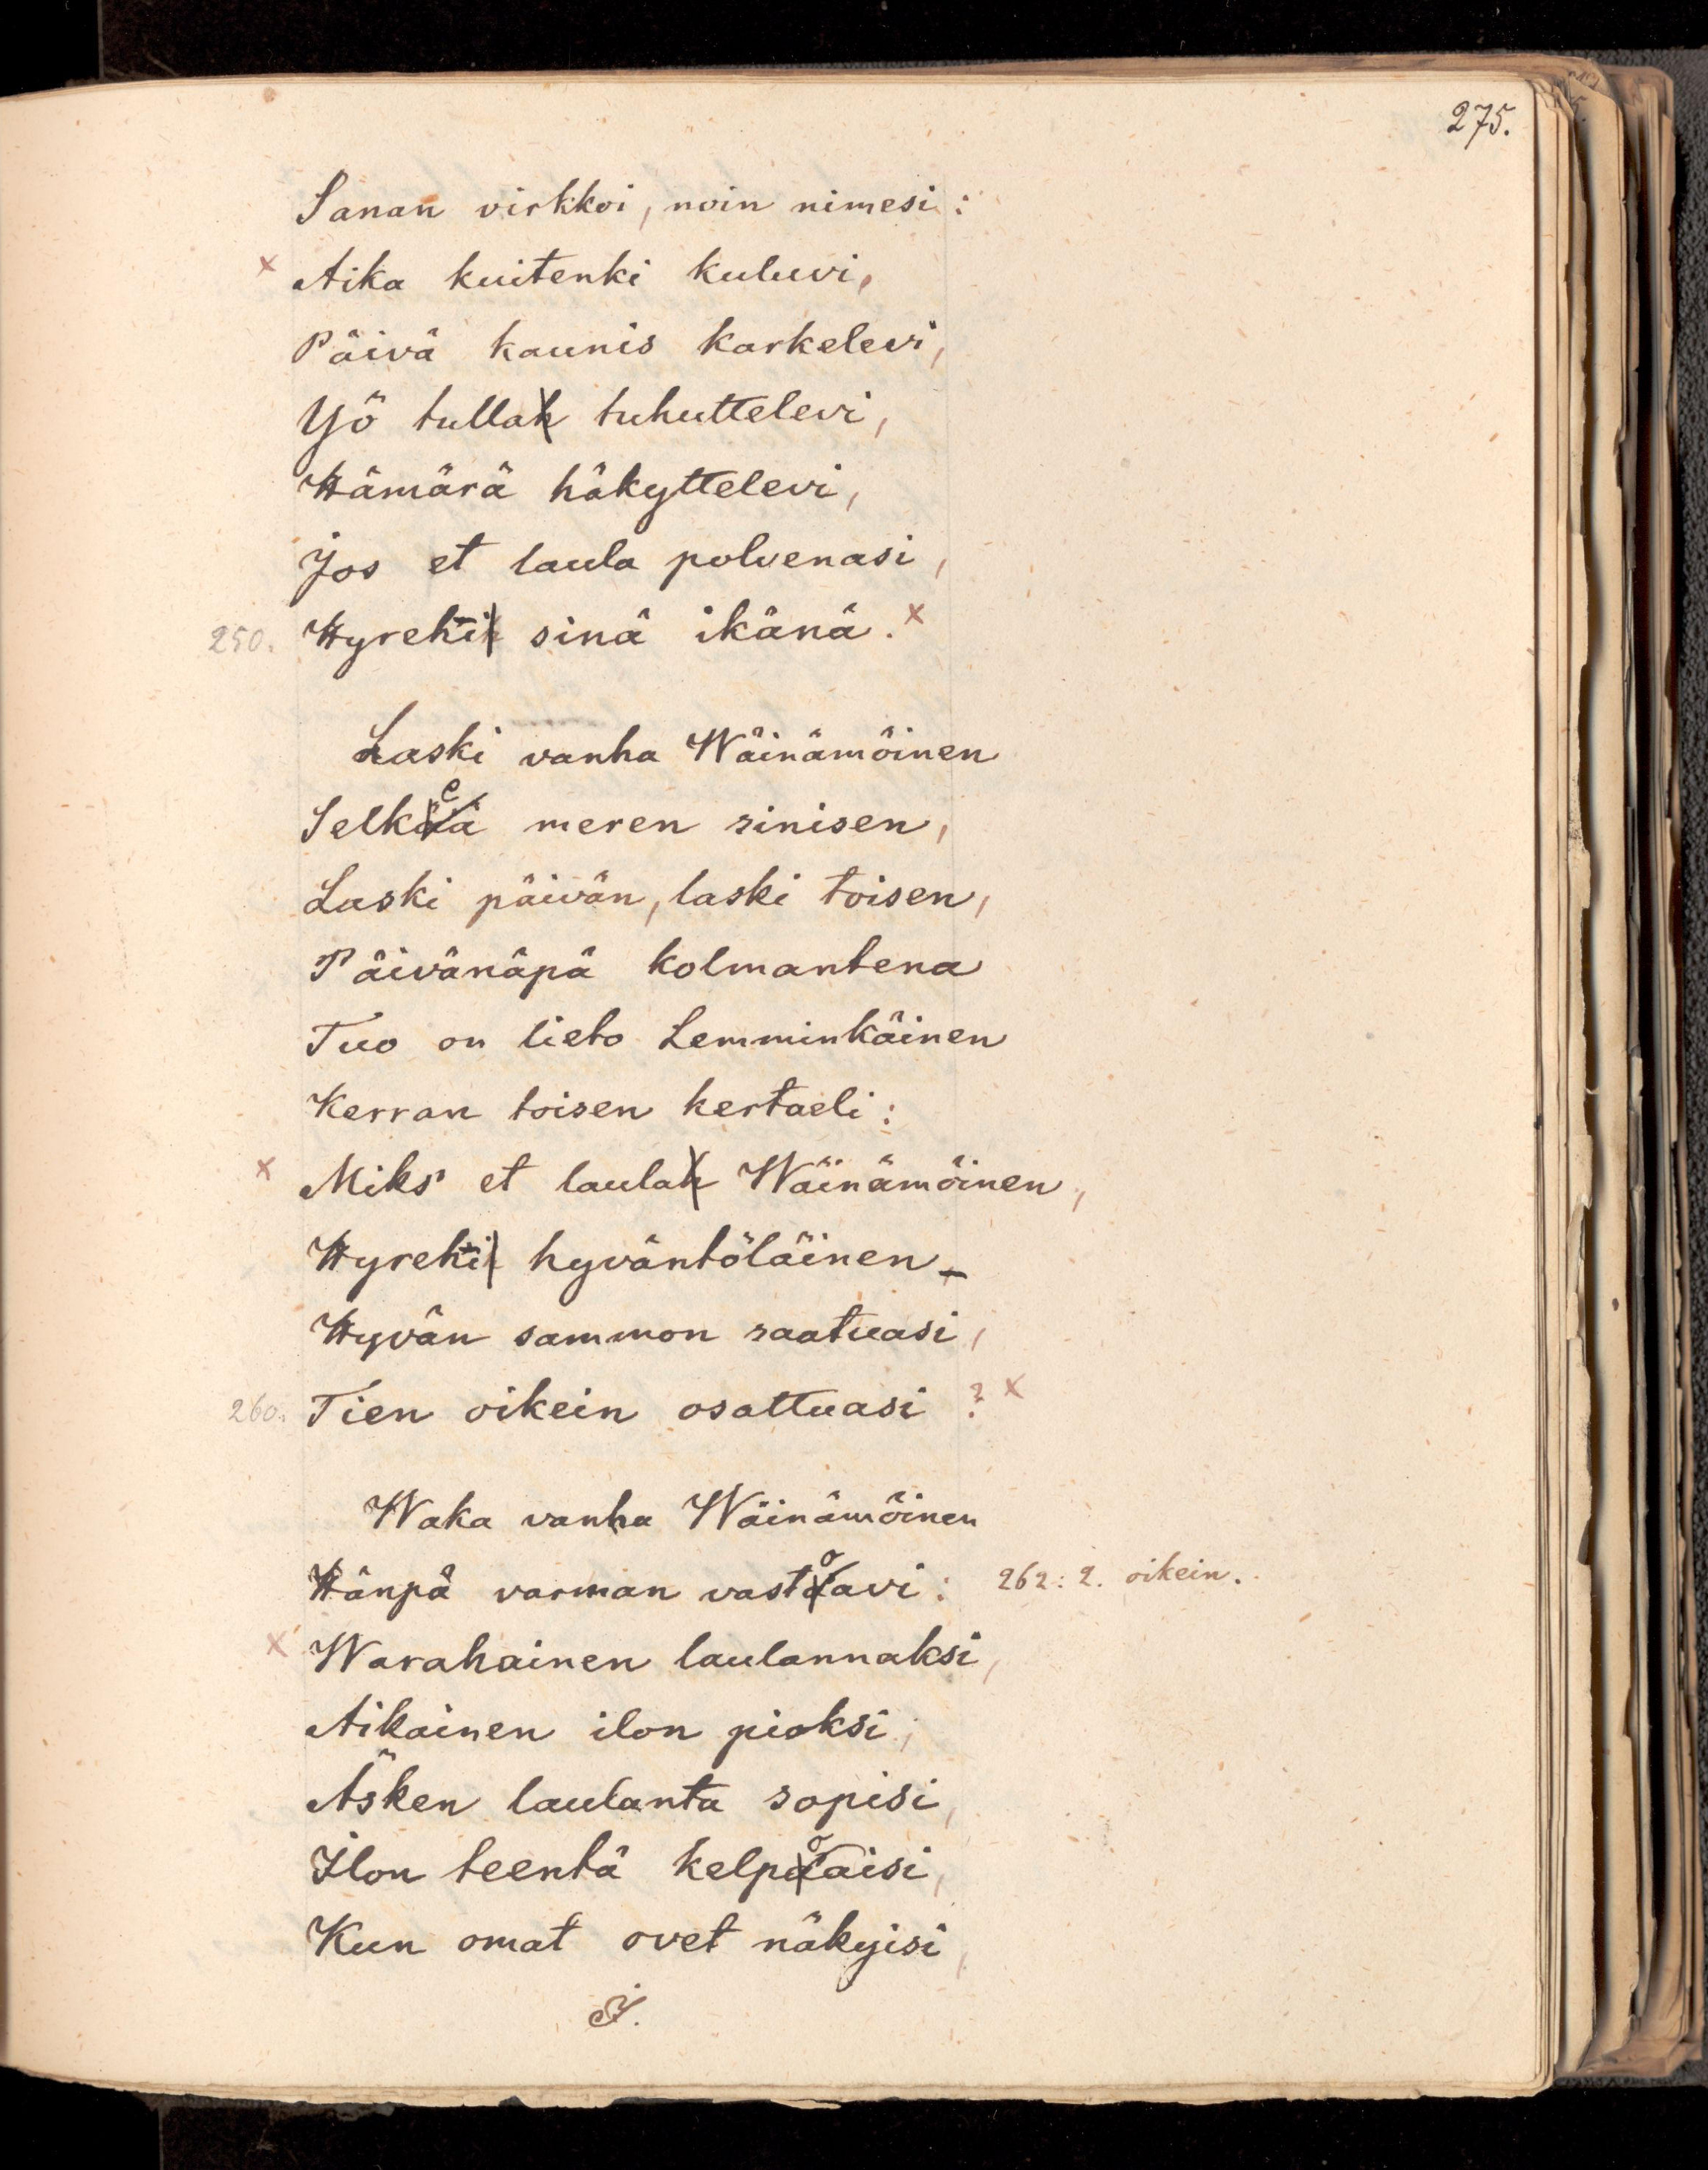 275.
Sanan virkkoi, noin nimesi:
× Aika kuitenki kuluvi,
Päivä kaunis karkelevi,
Yö tullah tuhuttelevi,
Hämärä häkyttelevi,
Jos et laula polvenasi,
250. Hyrehi sinä ikänä. ×
Laski vanha Wäinämöinen
Selkeä meren sinisen,
Laski päivän, laski toisen,
Päivänäpä kolmantena
Tuo on lieto Lemminkäinen
Kerran toisen kertaeli:
× Miks' et laulah Wäinämöinen,
Hyrehi hyväntöläinen –
Hyvän sammon saatuasi,
260. Tien oikein osattuasi ? ×
Waka vanha Wäinämöinen
Hänpä varman vastoavi: 262: 2. oikein.
× Warahainen laulannaksi,
Aikainen ilon pioksi;
Äsken laulanta sopisi,
Ilon teentä kelpoaisi,
Kun omat ovet näkyisi,
J.